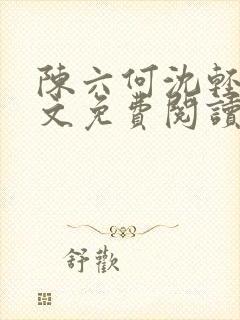 陳六何沈輕
文免費閱讀
舒歡